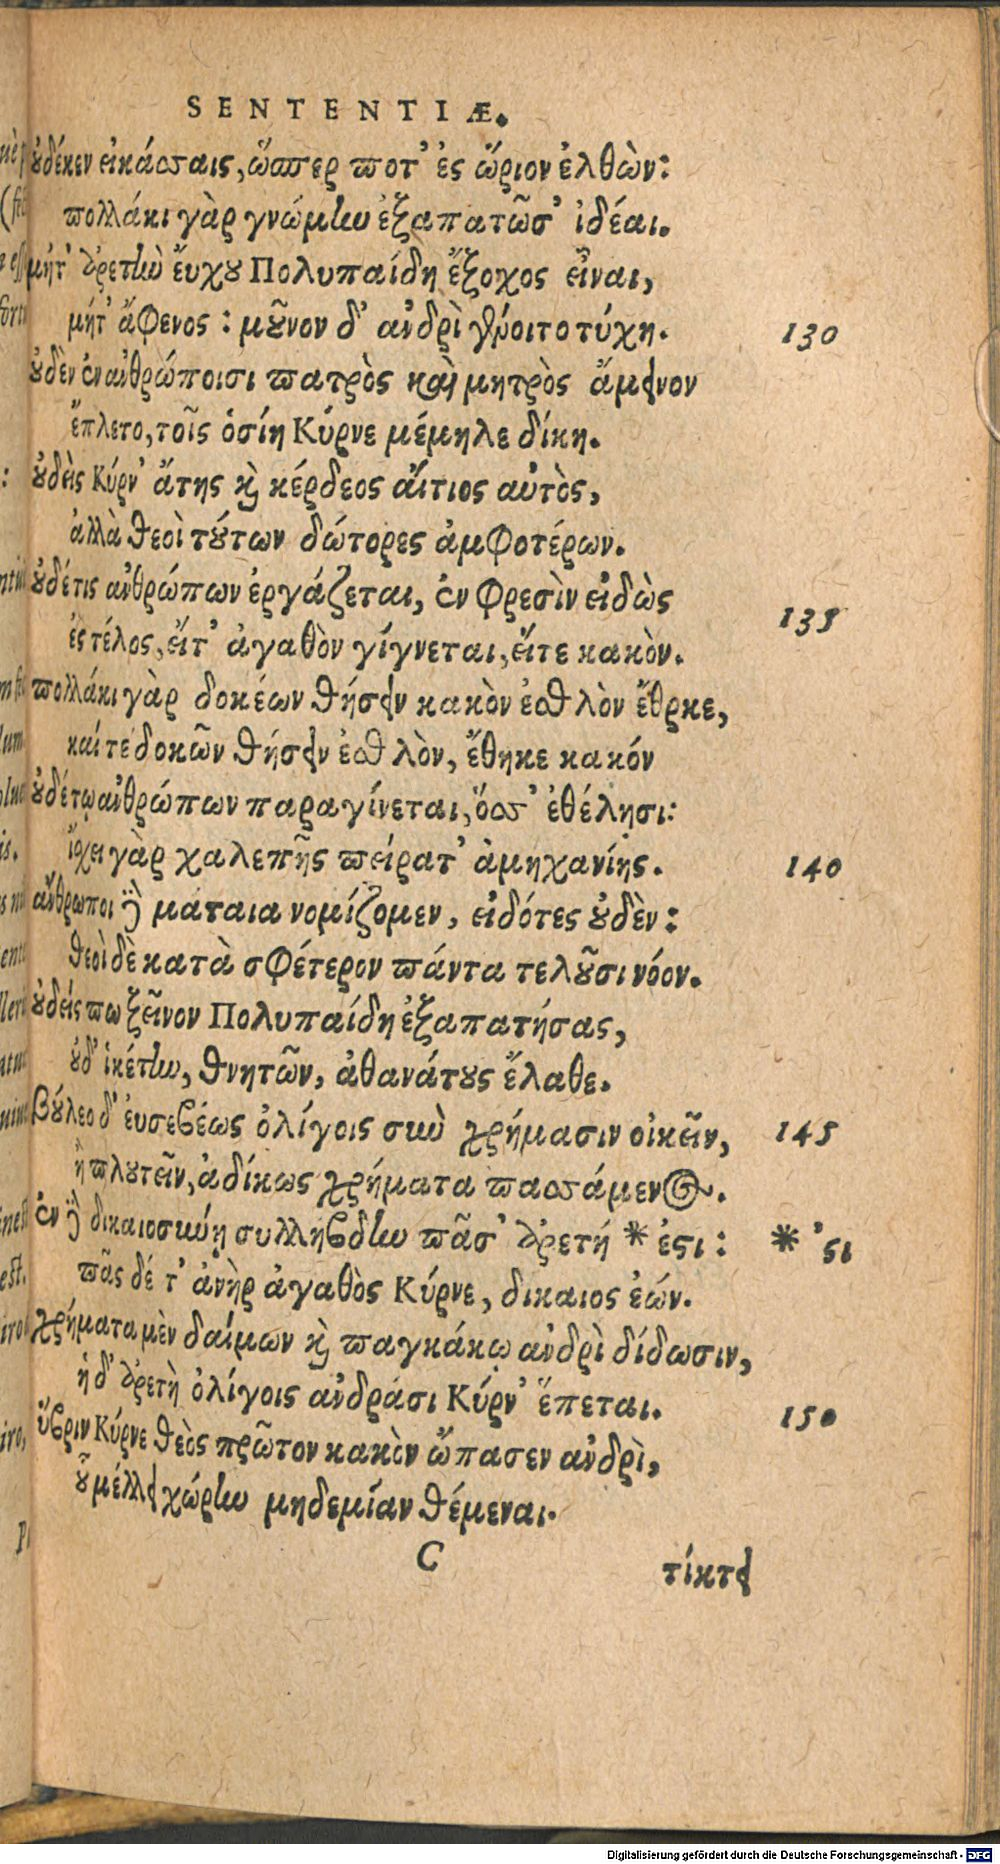 SENTENTIÆ.
οὐδέ κεν εἰκάσσαις, ὥσπερ ποτ' ἐς ὥριον ἐλθὼν:
πολλάκι γὰρ γνώμην ἐξαπατῶσ' ἰδέαι.
μήτ' ἀρετὴν ἔυχου Πολυπαίδη ἔξοχος εἶναι,
μήτ' ἄφενος: μοῦνον δ' ἀνδρὶ γένοιτο τύχη. 130
οὐδὲν ἐν ἀνθρώποισι πατρὸς καὶ μητρὸς ἄμεινον
ἔπλετο, τοῖς ὁσίη Κύρνε μέμηλε δίκη.
οὐδεὶς Κύρν' ἄτης καὶ κέρδεος αἴτιος αὐτὸς,
ἀλλὰ θεοὶ τούτων δώτορες ἀμφοτέρων.
οὐδέ τις ἀνθρώπων ἐργάζεται, ἐν φρεσὶν εἰδὼς 135
ἐς τέλος, εἴτ' ἀγαθὸν γίγνεται, εἴτε κακὸν.
πολλάκι γὰρ δοκέων θήσειν κακὸν ἐσθλὸν ἔθηκε,
καί τε δοκῶν θήσειν ἐσθλὸν, ἔθηκε κακόν
οὐδέ τῳ ἀνθρώπων παραγίνεται, ὅσσ' ἐθέλησι:
ἴσχει γὰρ χαλεπῆς πείρατ' ἀμηχανίης. 140
ἄνθρωποι δὲ μάταια νομίζομεν, εἰδότες οὐδὲν:
θεοὶ δὲ κατὰ σφέτερον πάντα τελοῦσι νόον.
οὐδείς πω ξεῖνον Πολυπαίδη ἐξαπατήσας,
οὐδ' ἱκέτην, θνητῶν, ἀθανάτους ἔλαθε.
βούλεο δ' ἐυσεβέως ὀλίγοις σὺν χρήμασιν οἰκεῖν, 145
ἢ πλουτεῖν, ἀδίκως χρήματα πασσάμενος.
ἐν δὲ δικαιοσύνῃ συλλήβδην πᾶσ' ἀρετή *ἐστι: * 'στι
πᾶς δέ τ' ἀνὴρ ἀγαθὸς Κύρνε, δίκαιος ἐών.
χρήματα μὲν δαίμων καὶ παγκάκῳ ἀνδρὶ δίδωσιν,
ἡ δ' ἀρετὴ ὀλίγοις ἀνδράσι Κύρν' ἕπεται. 150
ὕβριν Κύρνε θεὸς πρῶτον κακὸν ὤπασεν ἀνδρὶ,
οὗ μέλλει χώρην μηδεμίαν θέμεναι.
C τίκτει
Digitalisierung gefördert durch die Deutsche Forschungsgemeinschaft - DFG